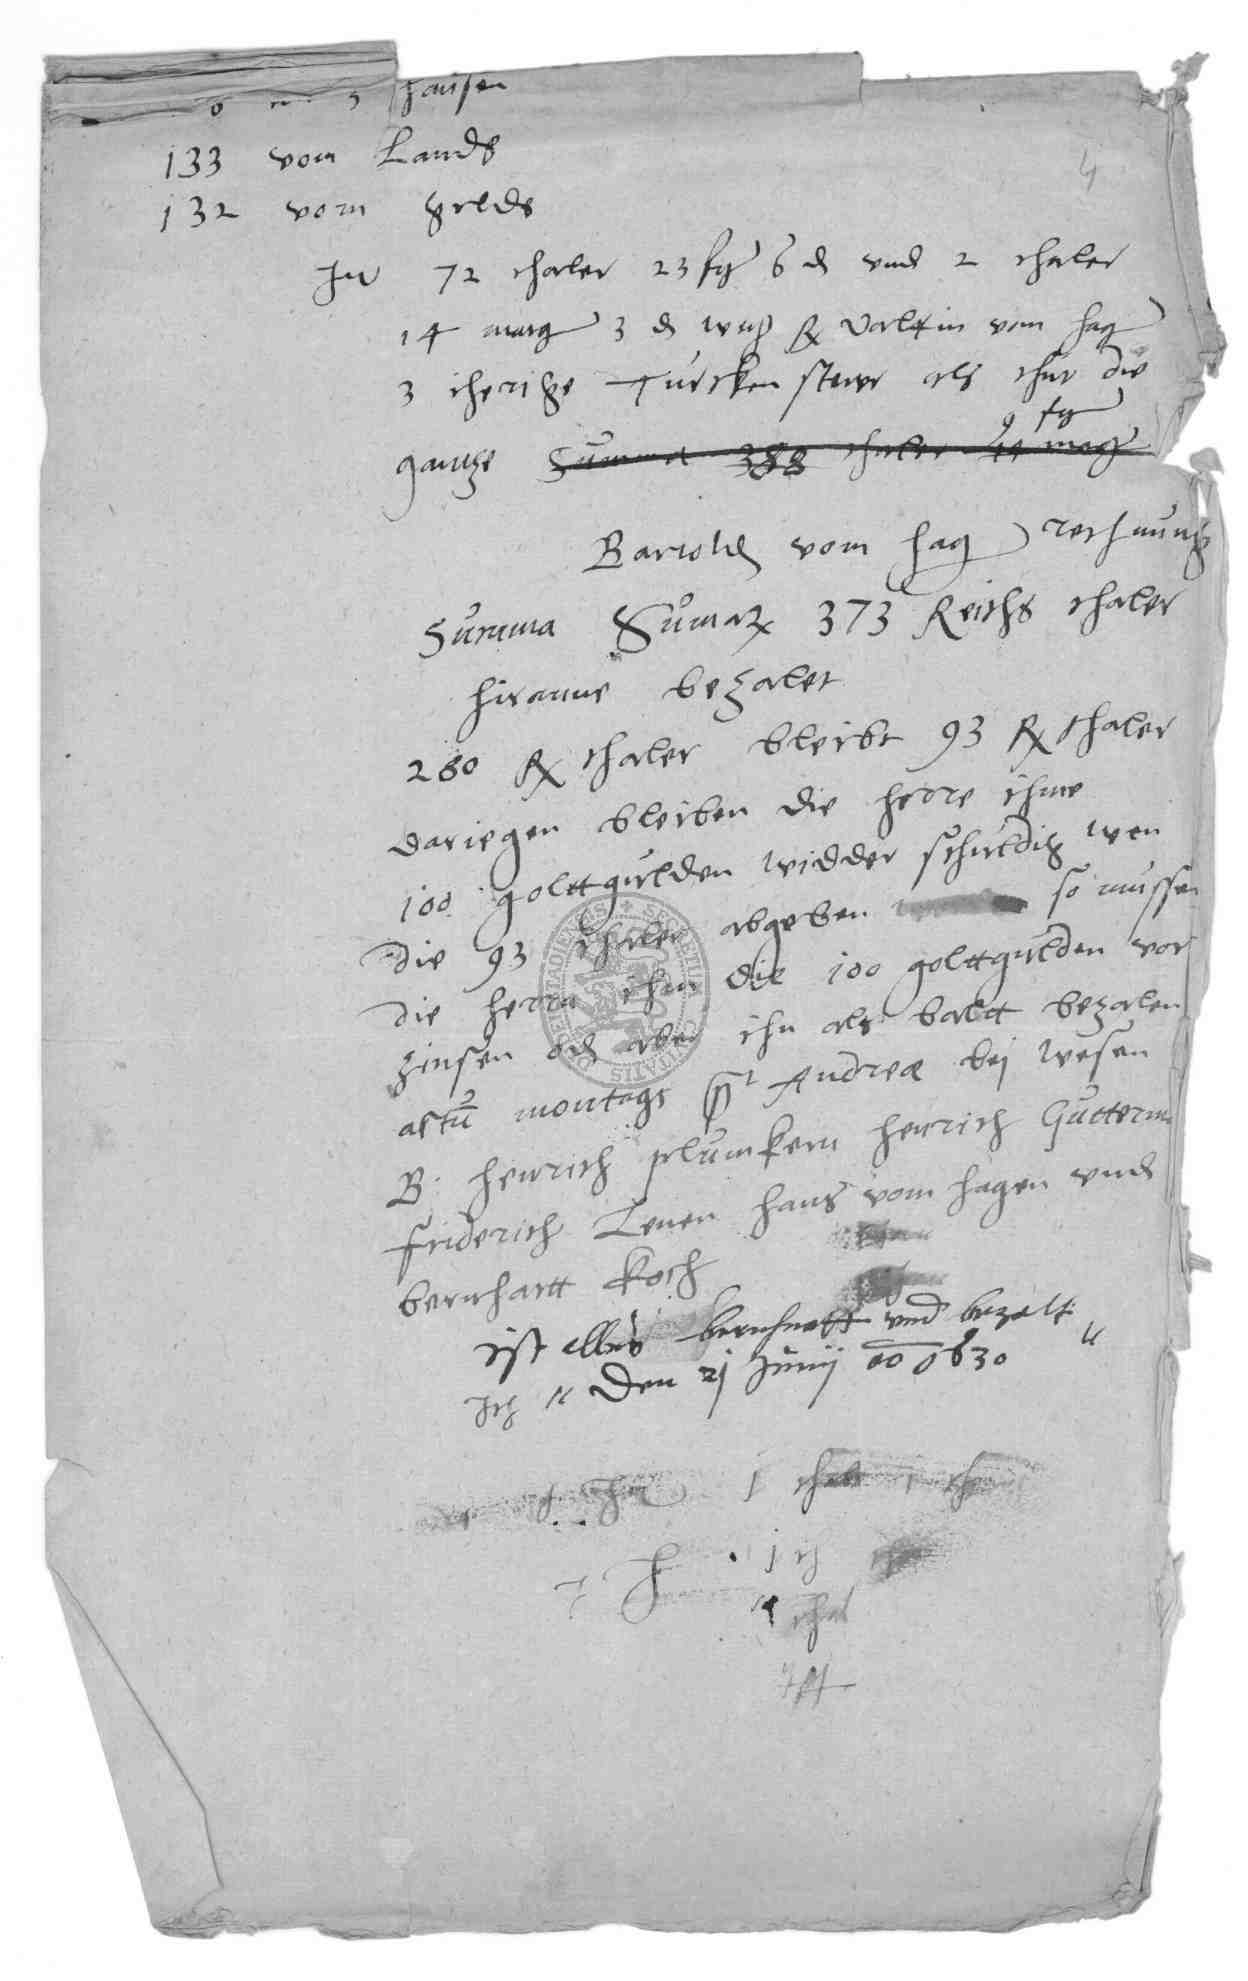 hausen
133 vom Lands
132 vom gelds
72 thaler 23 fg 6 d vnd 2 thaler
14 marg 3 d Valtin vom hag
3 iherige Turcken stewr als thut die
9 fg
gantze Summa 388 thaler marg
Bartold vom hag rechnung
Summa Sumar 373 Reichs thaler
hiranne bezalet
280 R thaler bleibt 93 R thaler
dariegen bleiben die herre ihme
100 golttgulden widder schuldig wen
die 93 thaler abgeben so mussen
die herrn ihm die 100 golttgulden vor
zinsen od aber ihn als baltt bezalen
actu montags Andreæ bej wesen
B: henrich plumkern henrich Gutterm
friderich Lenen hans vom hagen vnd
bernhartt Koch
ist alles vnd bezalt
den 21 Junij ao 1630
1 thaler 1
1
thal
SECRETUM CIVITATIS